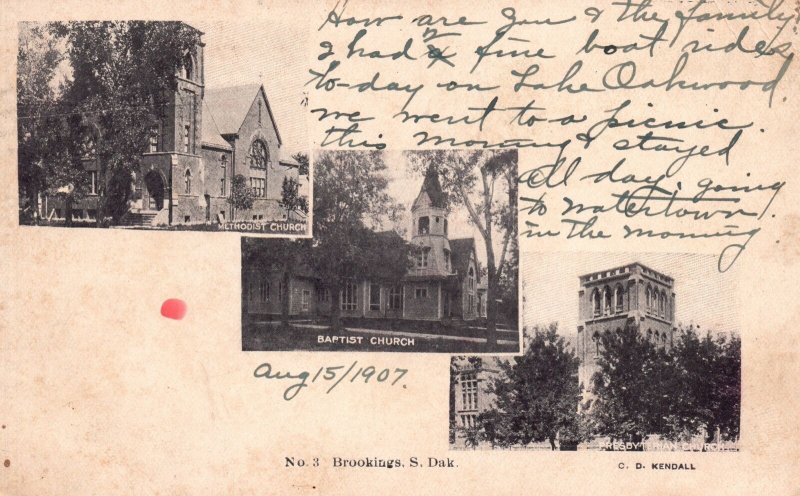 How are you & the family
I had fine boat rides
to-day on Lake Oakwood
we went to a picnic.
this morning & stayed
all day, going
to Watertown.
in the morning
METHODIST CHURCH
BAPTIST CHURCH
Aug 15/1907
PRESBYTERIAN CHURCH
No. 3 Brookings, S. Dak.
C. D. KENDALL